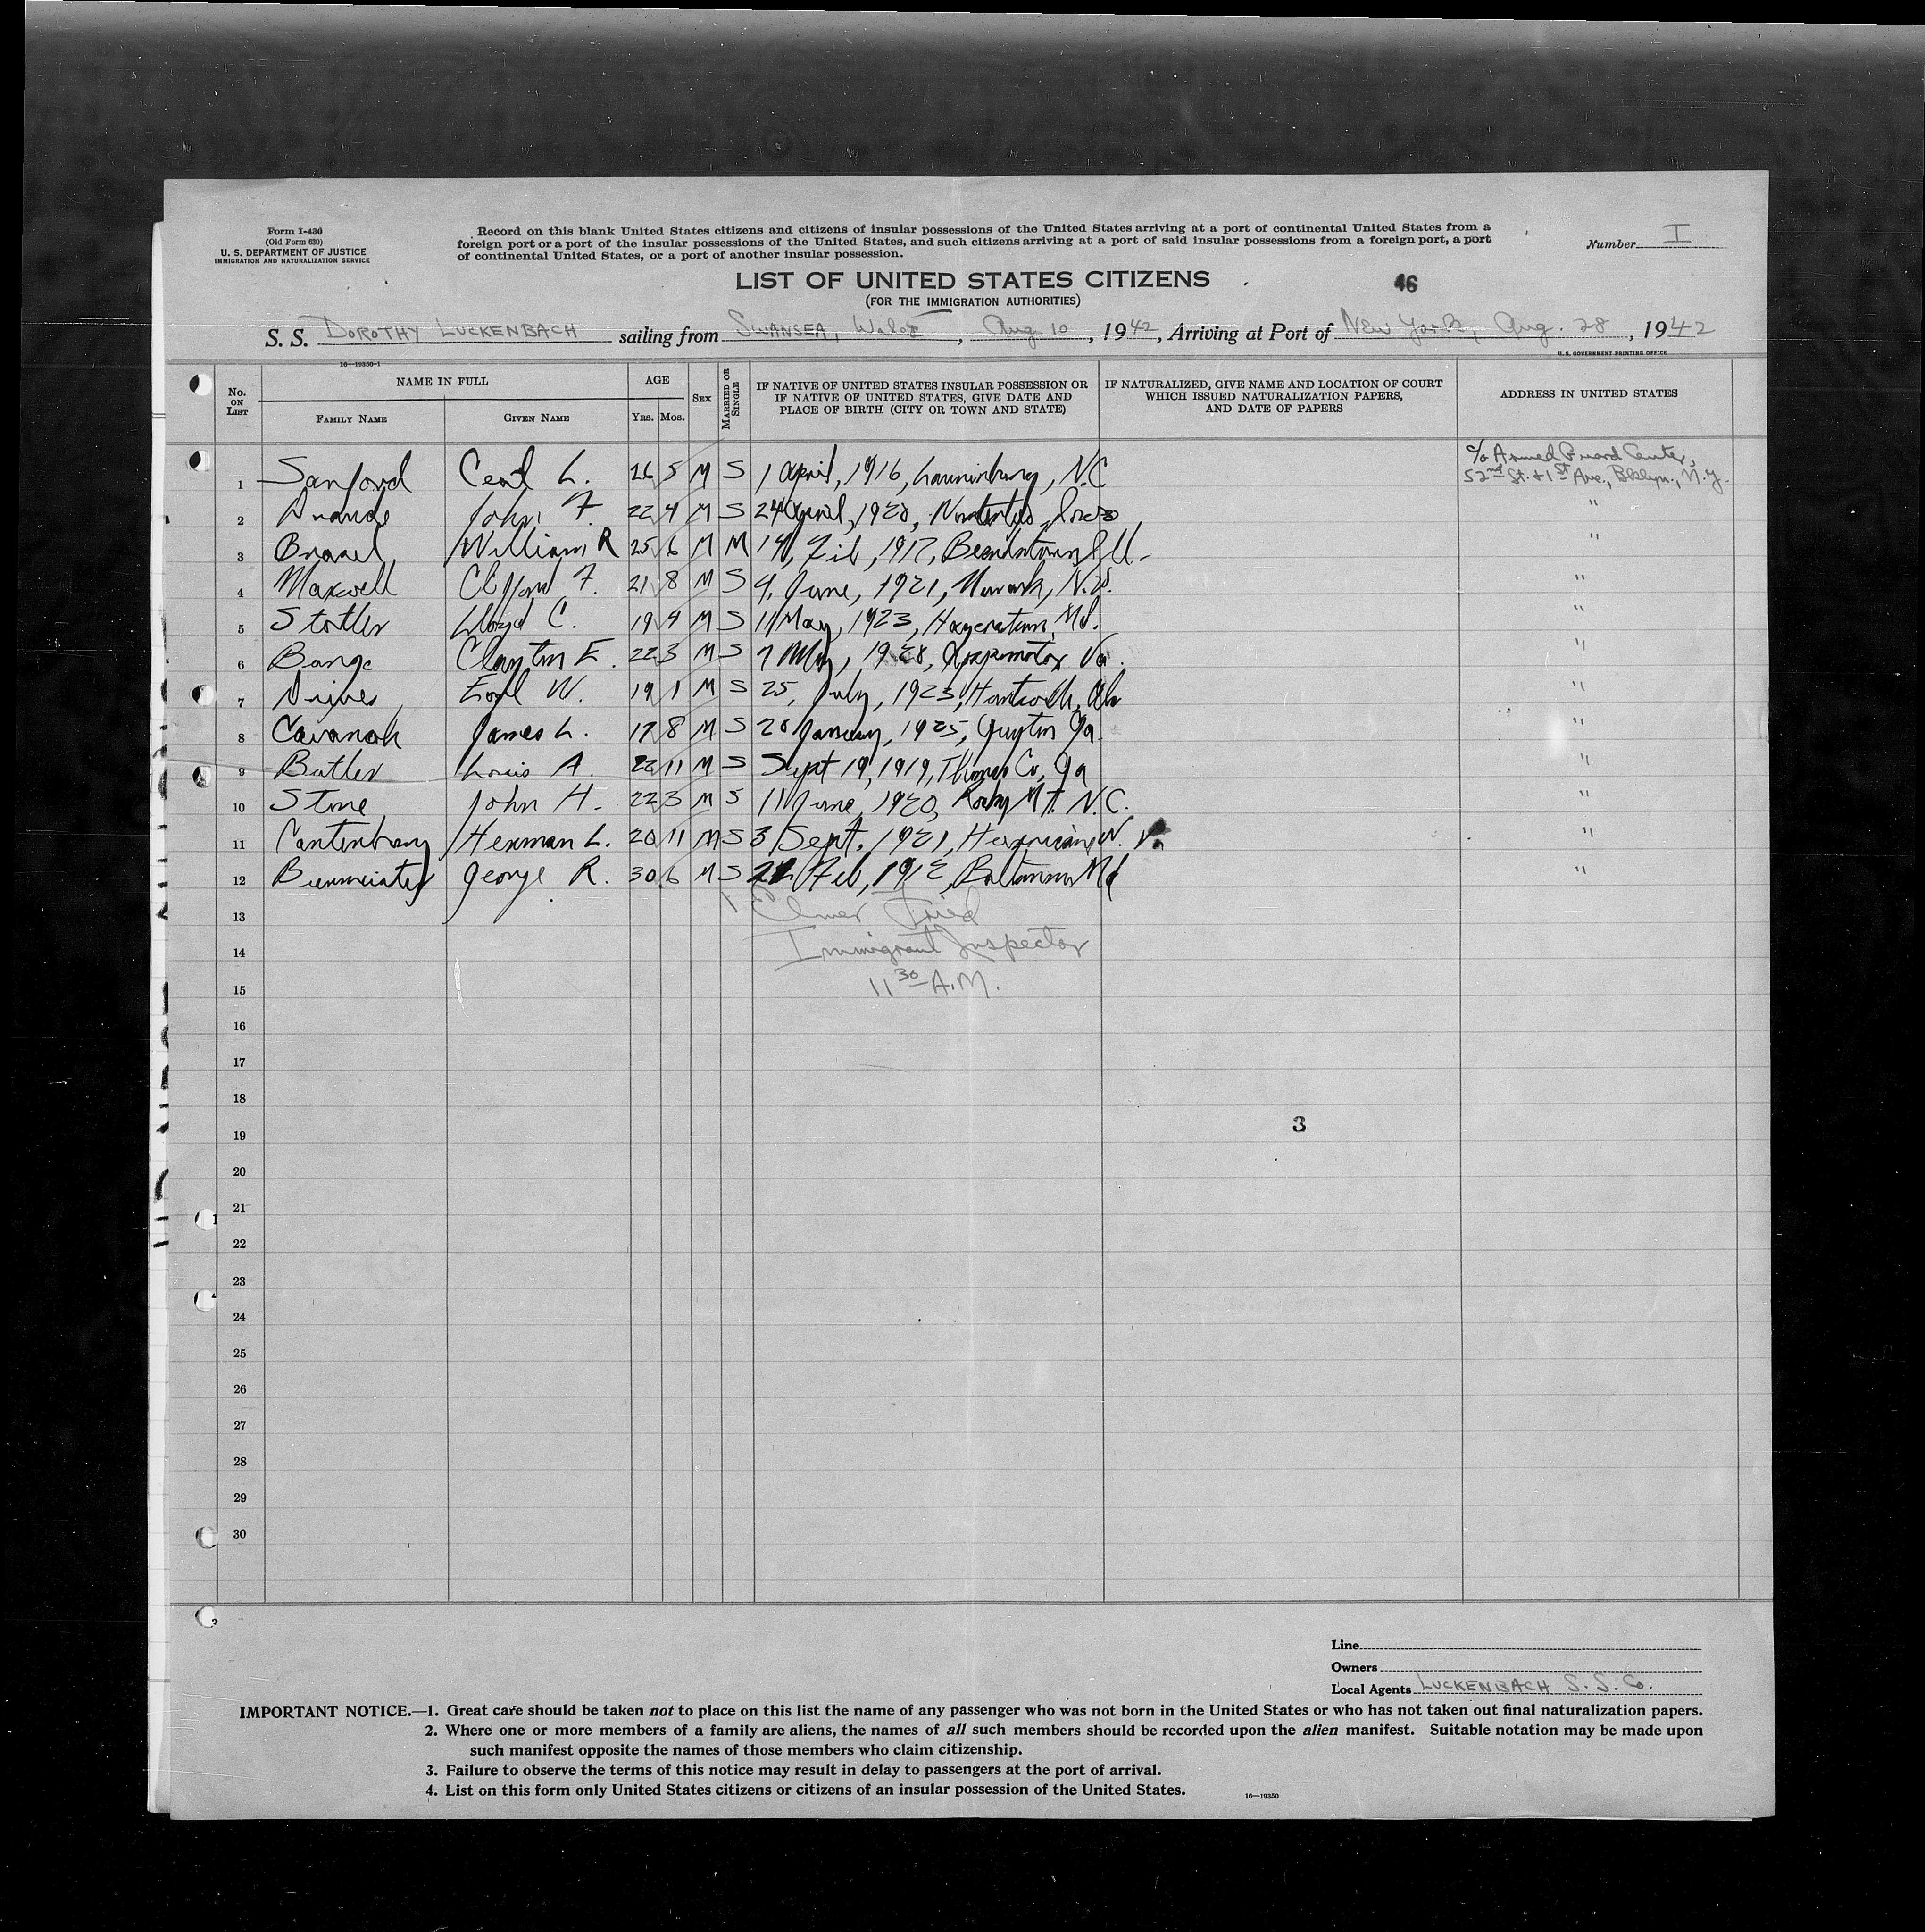 Form I-430
(Old Form 630)
U. S. DEPARTMENT OF JUSTICE
IMMIGRATION AND NATURALIZATION SERVICE
Record on this blank United States citizens and citizens of insular possessions of the United States arriving at a port of continental United States from a
foreign port or a port of the insular possessions of the United States, and such citizens arriving at a port of said insular possessions from a foreign port, a port
of continental United States, or a port of another insular possession.
Number I
LIST OF UNITED STATES CITIZENS
46
(FOR THE IMMIGRATION AUTHORITIES)
S. S. DOROTHY LUCKENBACH sailing from SWANSEA, Wales, Aug. 10, 1942, Arriving at Port of New York, Aug. 28, 1942
U. S. GOVERNMENT PRINTING OFFICE
16—19350-1
No. ON LIST
NAME IN FULL
FAMILY NAME
GIVEN NAME
AGE
YRS. MOS.
SEX
MARRIED OR SINGLE
IF NATIVE OF UNITED STATES INSULAR POSSESSION OR
IF NATIVE OF UNITED STATES, GIVE DATE AND
PLACE OF BIRTH (CITY OR TOWN AND STATE)
IF NATURALIZED, GIVE NAME AND LOCATION OF COURT
WHICH ISSUED NATURALIZATION PAPERS,
AND DATE OF PAPERS
ADDRESS IN UNITED STATES
c/o Armed Guard Center,
1 Sanford Cecil L. 26 5 M S 1 April, 1916, N.C 52nd St. & 1st Ave., Bklyn., N.Y.
2 John F. 22 4 M S 24 April, 1920, "
3 William R 25 6 M M 14, Feb, 1917, Beardstown Ill. "
4 Maxwell Clifford F. 21 8 M S 9, June, 1921, Newark, N.J. "
5 Stotler Lloyd C. 19 4 M S 11 May, 1923, Md. "
6 Clayton E. 22 3 M S 7 May, Va. "
7 Earl W. 19 1 M S 25, July, 1923, "
8 Cavanah James L. 17 8 M S January, 1925, Guyton Ga. "
9 Butler Louis A. 22 11 M S Sept 19, 1919, Thomas Co, Ga "
10 Stone John H. 22 3 M S 11 June, 1920, Rocky Mt. N.C. "
11 Herman L. 20 11 M S 3 Sept. 1921, W. Va "
12 George R. 30 6 M S 22 Feb, 1912, Md "
13 Elmer Fried
14 Immigrant Inspector
15 11 30 A.M.
16
17
18
3
19
20
21
22
23
24
25
26
27
28
29
30
Line
Owners
Local Agents LUCKENBACH S. S. Co.
IMPORTANT NOTICE.—1. Great care should be taken not to place on this list the name of any passenger who was not born in the United States or who has not taken out final naturalization papers.
2. Where one or more members of a family are aliens, the names of all such members should be recorded upon the alien manifest. Suitable notation may be made upon
such manifest opposite the names of those members who claim citizenship.
3. Failure to observe the terms of this notice may result in delay to passengers at the port of arrival.
4. List on this form only United States citizens or citizens of an insular possession of the United States.
16—19350